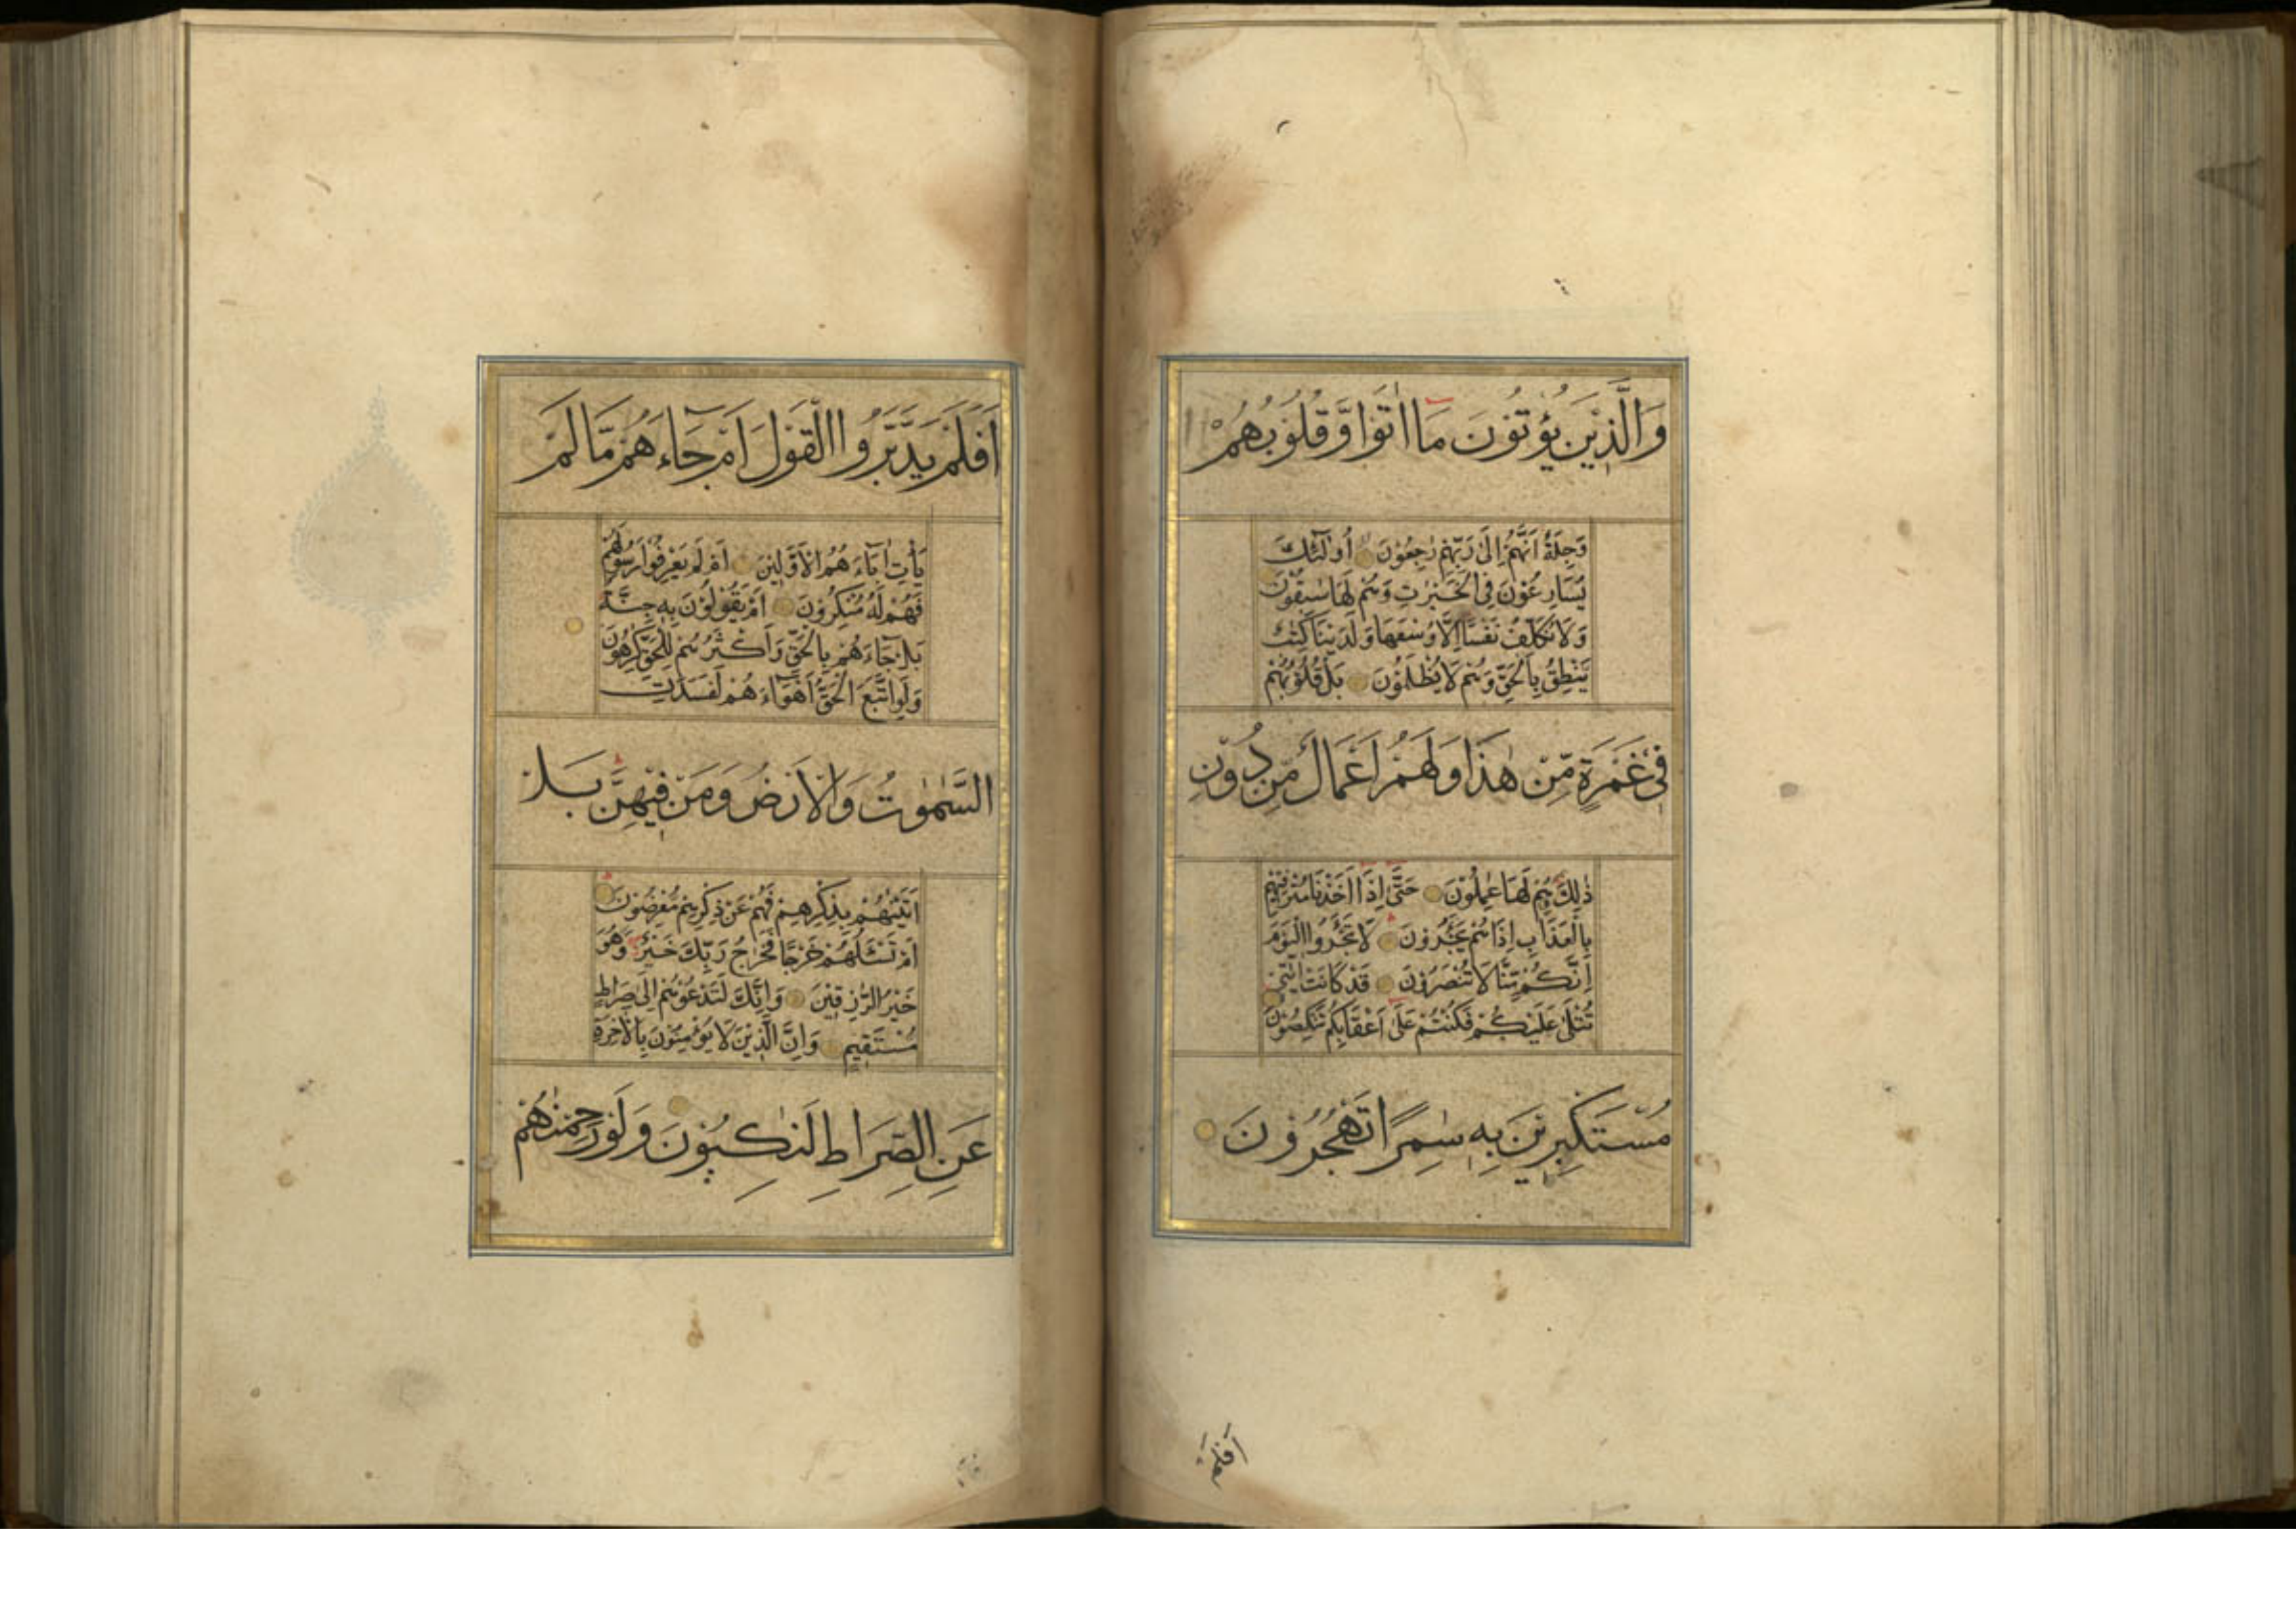 وَالَّذِيْنَ يُؤْتُوْنَ مَا اٰتَوْا وَّقُلُوْبُهُمْ
وَجِلَةٌ اَنَّهُمْ اِلٰى رَبِّهِمْ رٰجِعُوْنَ اُولٰٓئِكَ
يُسَارِعُوْنَ فِى الْخَيْرٰتِ وَهُمْ لَهَا سٰبِقُوْنَ
وَلَا نُكَلِّفُ نَفْسًا اِلَّا وُسْعَهَا وَلَدَيْنَا كِتٰبٌ
يَنْطِقُ بِالْحَقِّ وَهُمْ لَا يُظْلَمُوْنَ بَلْ قُلُوْبُهُمْ
فِىْ غَمْرَةٍ مِّنْ هٰذَا وَلَهُمْ اَعْمَالٌ مِّنْ دُوْنِ
ذٰلِكَ هُمْ لَهَا عٰمِلُوْنَ حَتّٰى اِذَا اَخَذْنَا مُتْرَفِيْهِمْ
بِالْعَذَابِ اِذَا هُمْ يَجْـَٔرُوْنَ لَا تَجْـَٔرُوا الْيَوْمَ
اِنَّكُمْ مِّنَّا لَا تُنْصَرُوْنَ قَدْ كَانَتْ اٰيٰتِىْ
تُتْلٰى عَلَيْكُمْ فَكُنْتُمْ عَلٰى اَعْقَابِكُمْ تَنْكِصُوْنَ
مُسْتَكْبِرِيْنَ بِهٖ سٰمِرًا تَهْجُرُوْنَ
اَفَلَمْ
اَفَلَمْ يَدَّبَّرُوا الْقَوْلَ اَمْ جَاءَهُمْ مَّا لَمْ
يَأْتِ اٰبَاءَهُمُ الْاَوَّلِيْنَ اَمْ لَمْ يَعْرِفُوْا رَسُوْلَهُمْ
فَهُمْ لَهٗ مُنْكِرُوْنَ اَمْ يَقُوْلُوْنَ بِهٖ جِنَّةٌ
بَلْ جَاءَهُمْ بِالْحَقِّ وَاَكْثَرُهُمْ لِلْحَقِّ كٰرِهُوْنَ
وَلَوِ اتَّبَعَ الْحَقُّ اَهْوَاءَهُمْ لَفَسَدَتِ
السَّمٰوٰتُ وَالْاَرْضُ وَمَنْ فِيْهِنَّ بَلْ
اَتَيْنٰهُمْ بِذِكْرِهِمْ فَهُمْ عَنْ ذِكْرِهِمْ مُّعْرِضُوْنَ
اَمْ تَسْـَٔلُهُمْ خَرْجًا فَخَرَاجُ رَبِّكَ خَيْرٌ وَّهُوَ
خَيْرُ الرّٰزِقِيْنَ وَاِنَّكَ لَتَدْعُوْهُمْ اِلٰى صِرَاطٍ
مُّسْتَقِيْمٍ وَاِنَّ الَّذِيْنَ لَا يُؤْمِنُوْنَ بِالْاٰخِرَةِ
عَنِ الصِّرَاطِ لَنٰكِبُوْنَ وَلَوْ رَحِمْنٰهُمْ